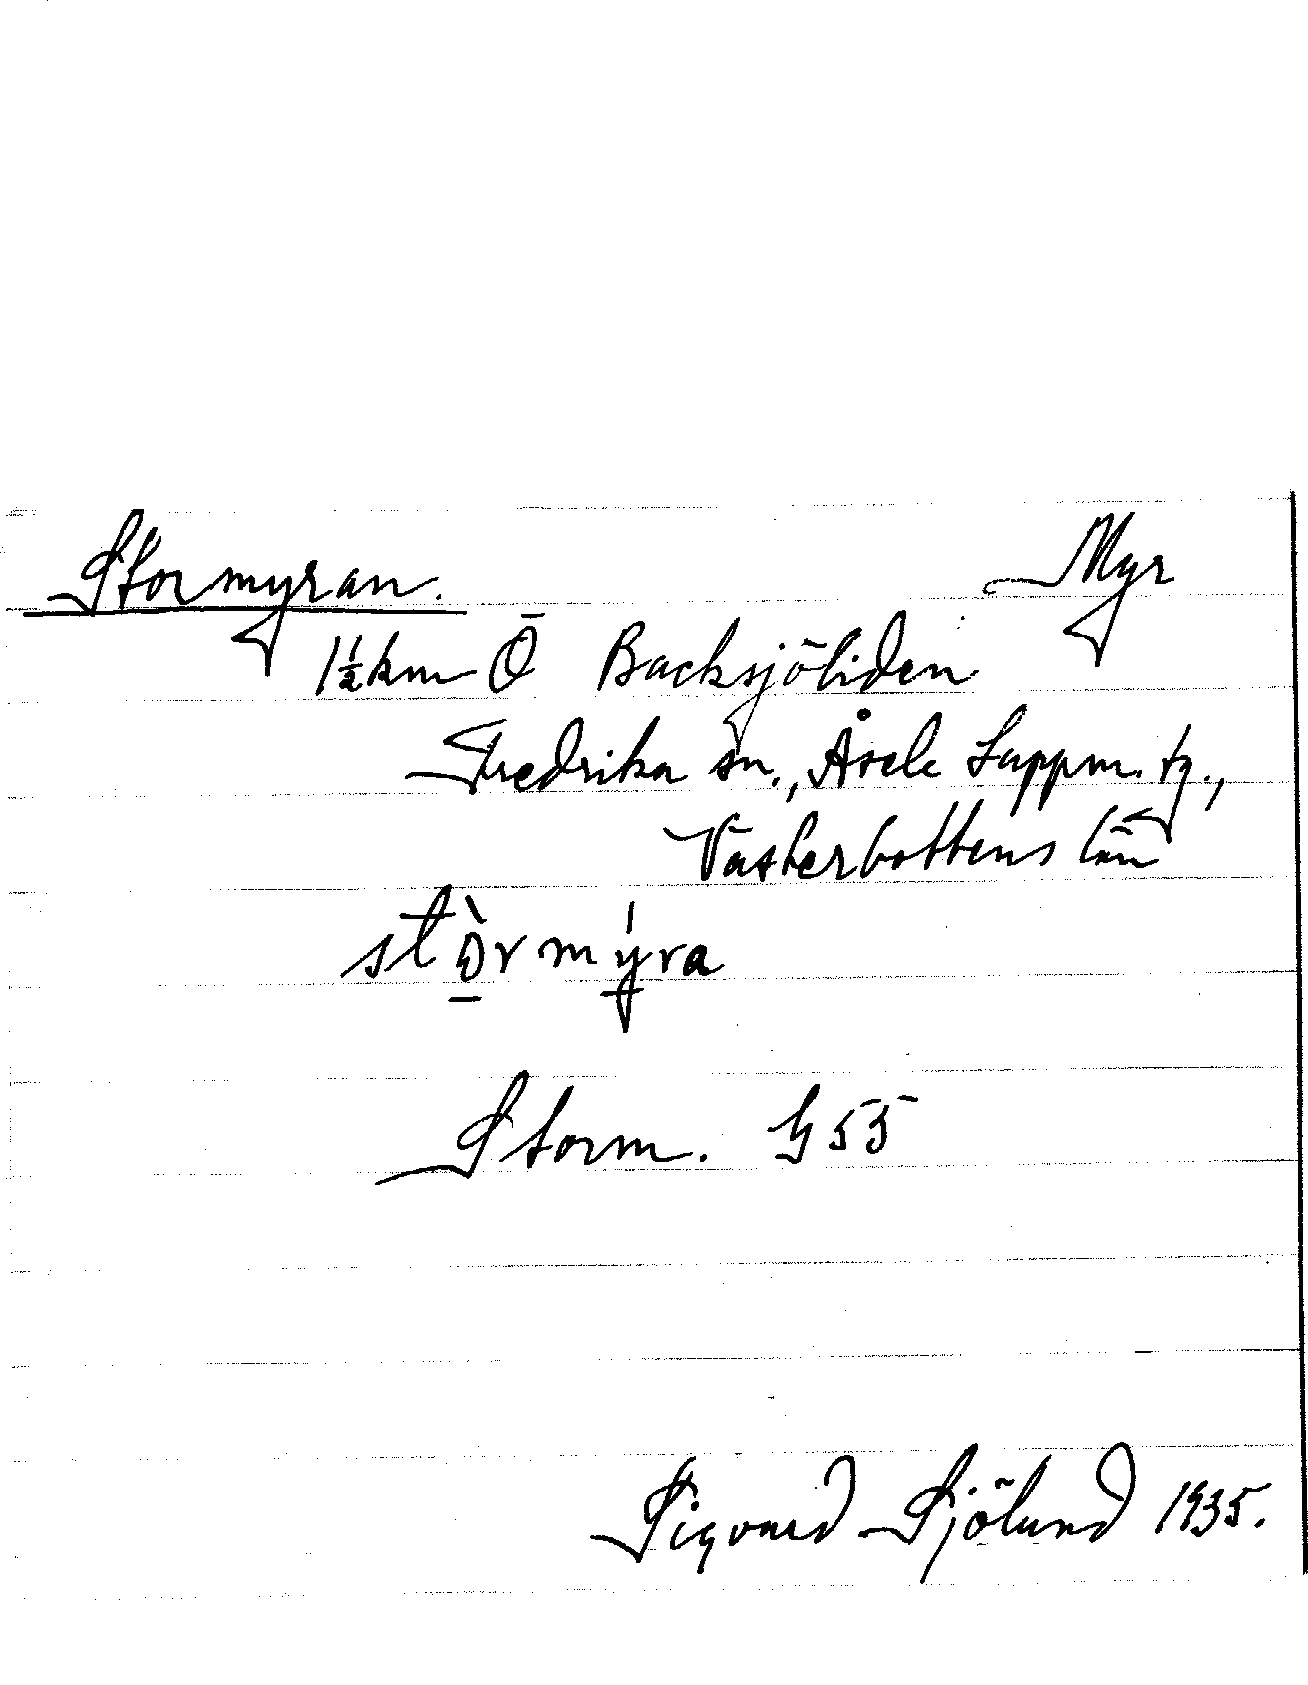 Stormyran. Myr
1½ km Ö Backsjöliden
Fredrika sn., Åsele Lappm. tg.,
Västerbottens län
stòrmýra
Storm. G 55
Sigvard Sjölund 1935.